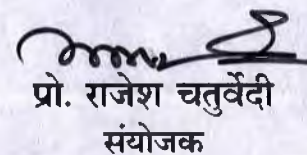 प्रो. राजेश चतुर्वेदी
संयोजक